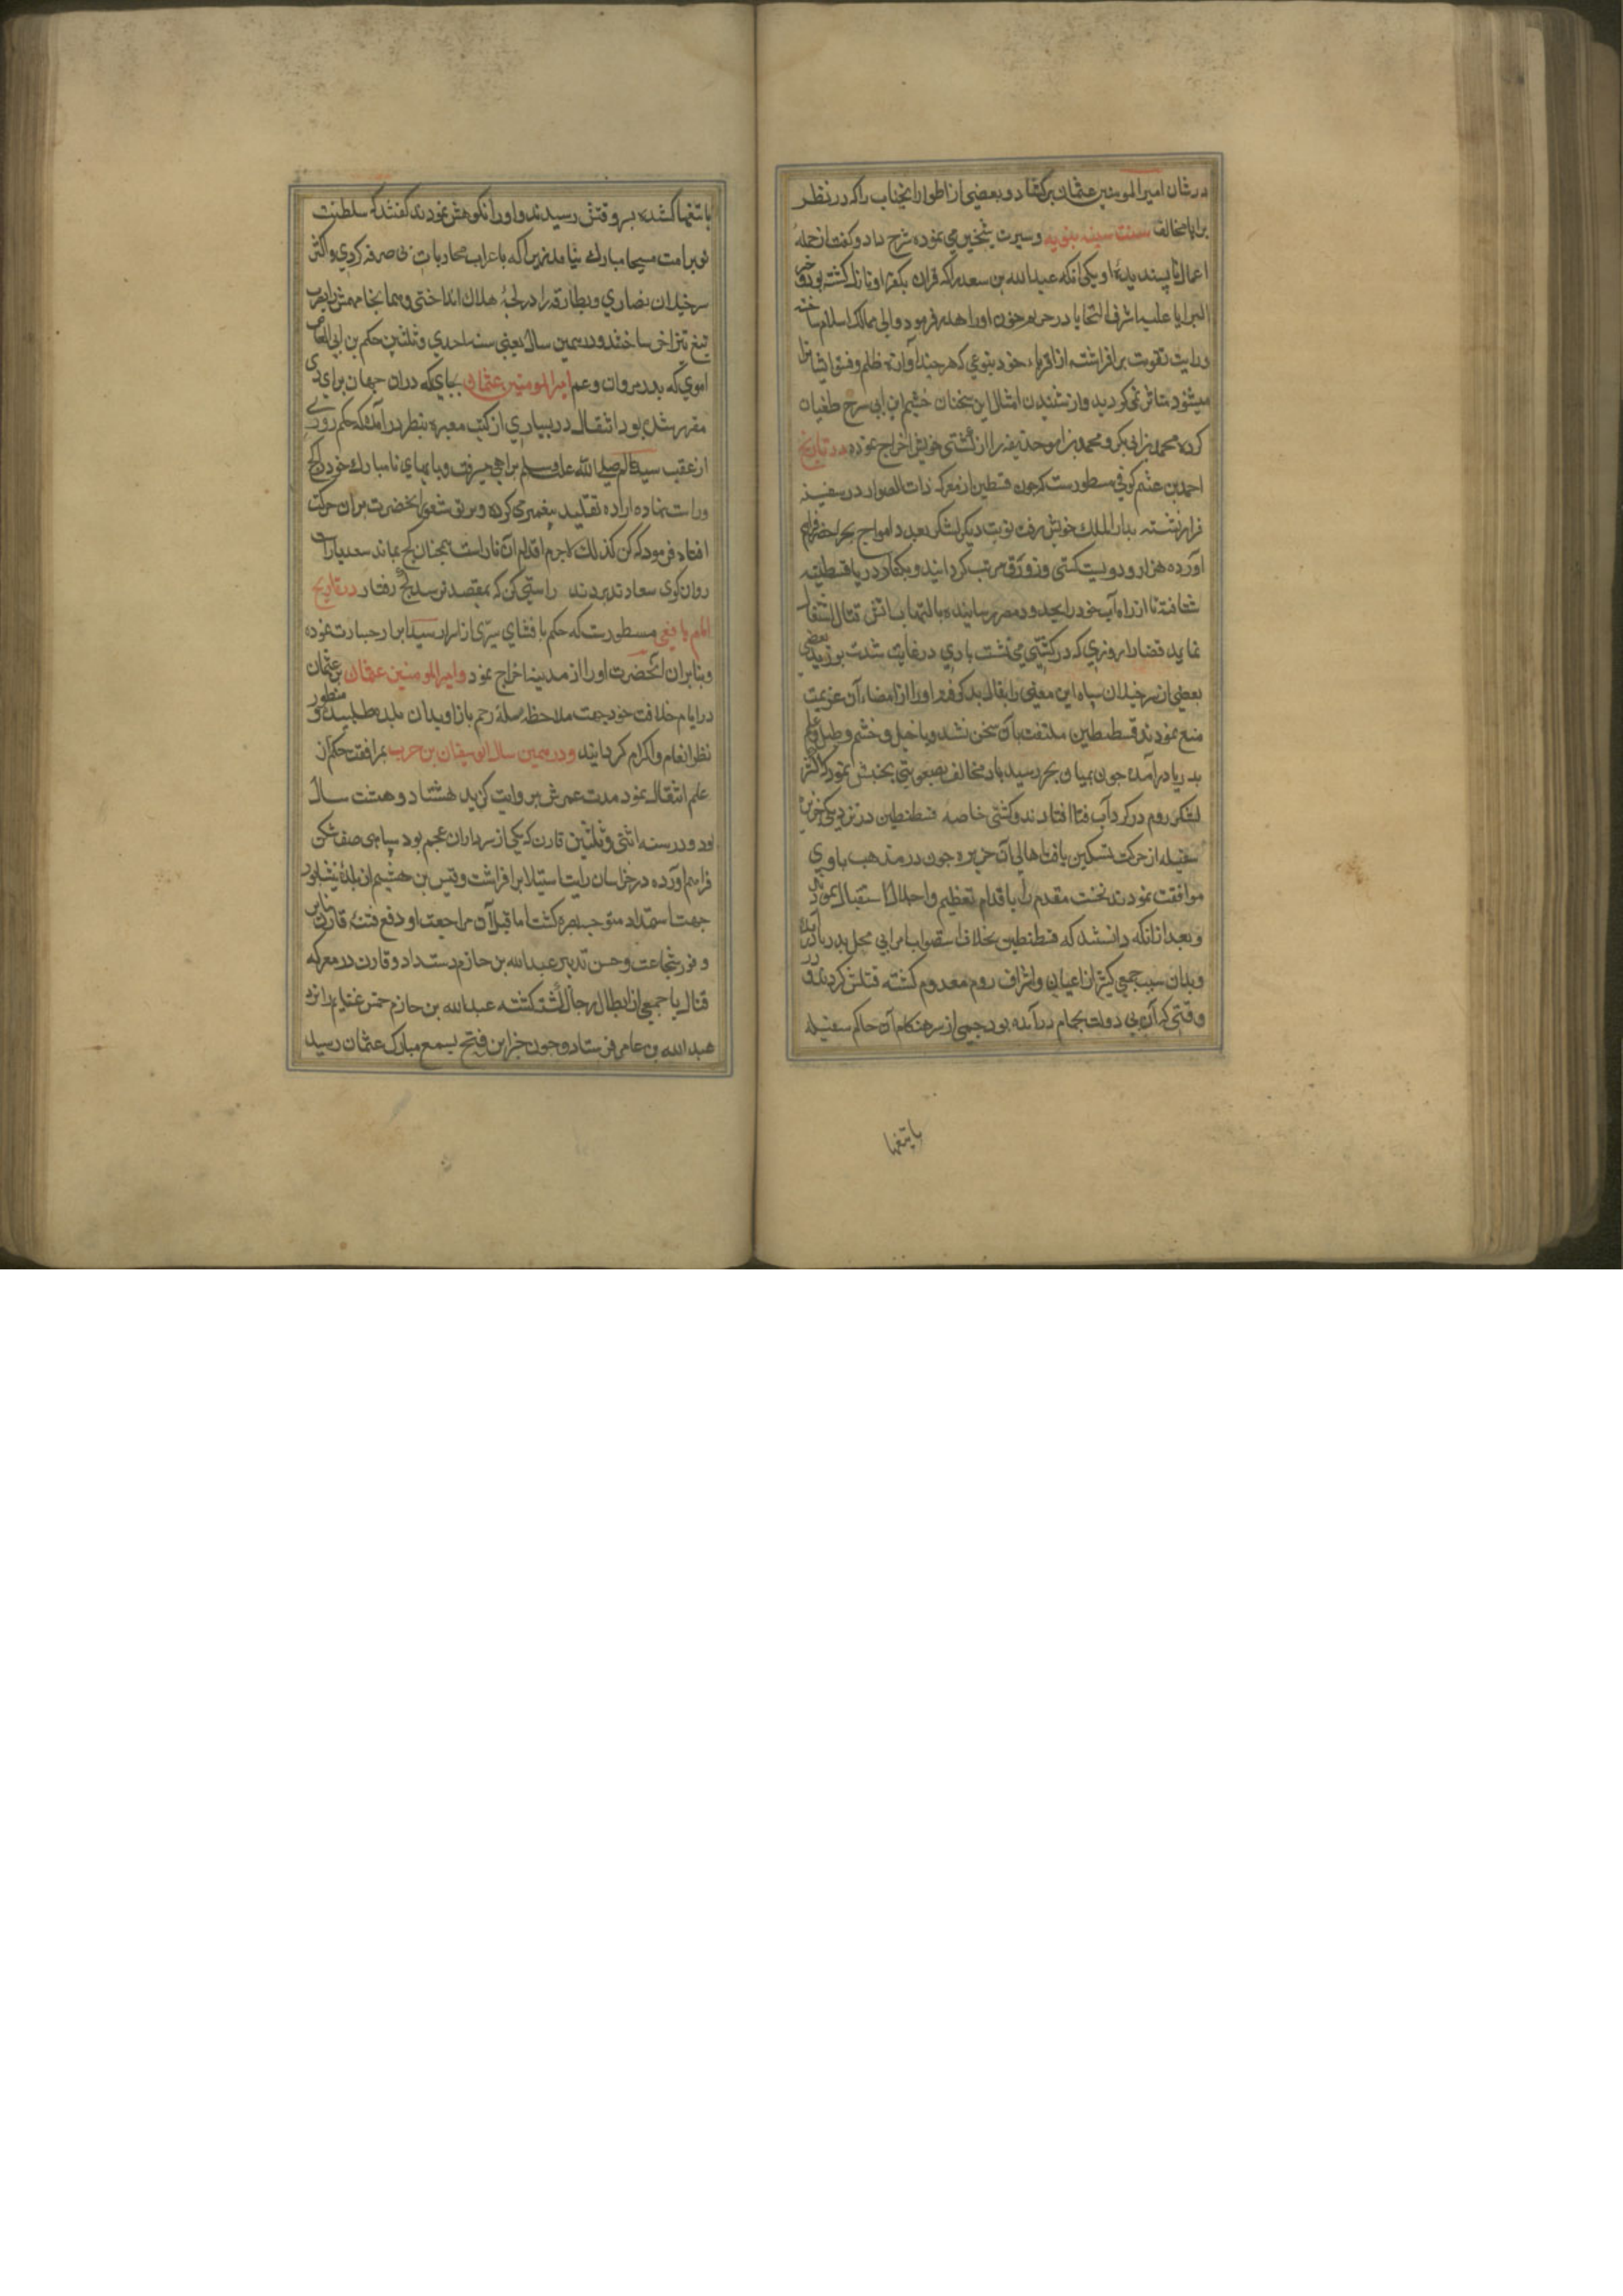 در شان امیرالمومنین عثمان برکشاد و بعضی از اطوار آنجناب را که در نظر
برایا مخالف سنت سنیه نبویه و سیرت شیخین می نموده شرح داد و کفت از جمله
اعمال ناپسندیدهٔ او یکی آنکه عبدالله بن سعد را که قران بکفر او نازل کشته بود و خیر
البرایا علیه اشرف التحایا در حرم خون او را هدر فرمود والی ممالک اسلام ساخته
و رایت تقویت برافراشته از اقرباء خود بنوعی که هرچند آوازه ظلم و فسق ایشانرا
میشنود متاثر نمی کردید و از شنیدن امثال این سخنان خشم ابن ابی سرح طغیان
کرده محمد بن ابی بکر و محمد بن ابو حذیفه را از کشتی خویش اخراج نموده در تاریخ
احمد بن عثم کوفی مسطورست که چون قسطین از معرکه ذات الصوار در سفینه
فرار نشسته بدار الملک خویش رفت نوبت دیکر لشکر بعدد امواج بحر اخضر فراهم
آورده هزار و دویست کشتی و زورق مرتب کردانید و بکنار دریا قسطنطنیه
شتافته تا از راه آب خود را بحدود مصر رسانیده بالتهاب اتش قتال اشتغال
نماید قضا را روزی که در کشتی می نشست بادی در غایت شدت بوزید بعضی
بعضی از سرخیلان سپاه این معنی را بفال بد کرفته او را از امضاء آن عزیمت
منع نمودند قسطنطین ملتفت بآن سخن نشد و با خیل و حشم و طبل و علم
بدریا درآمده چون بمیان بحر رسید باد مخالف بصعوبتی بجنبش نمود که اکثر
لشکر روم در کرداب فنا افتادند و کشتی خاصه قسطنطین در نزدیکی جزیره
سقیله از حرکت تسکین یافت اهالی آن جزیره چون در مذهب باوی
موافقت نمودند نخست مقدم را باقدام تعظیم و اجلال استقبال نمودند
و بعد از آنکه دانستند که قسطنطین بخلاف استصواب امرا بی محل بدریا درآمده
و بدان سبب جمعی کثیر از اعیان و اشراف روم معدوم کشته قتلش کردند و در
وقتی که آن بی دولت بحمام درآمده بود جمعی از سرهنکان حاکم سقیله
با تیغها
با تیغها کشیده بروقتش رسیدند و او را نکوهش نمودند کفتند که سلطنت
تو برامت مسیحا مبارک نیامد زیرا که با عراب محاربات بی صرفه کردی و اکثر
سرخیلان نصاری و بطارقه را در لجهٔ هلاک انداختی و همانجا مهمش را بضرب
تیغ تیز آخر ساختند و در همین سال یعنی سنه احدی و ثلثین حکم بن ابی العاص
اموی که پدر مروان و عم امیرالمومنین عثمان بجایی که دران جهان برای وی
مقرر شده بود انتقال در بسیاری از کتب معتبره بنظر درآمده که حکم روزی
از عقب سید عالم صلی الله علیه وسلم براهی میرفت و پایهای نامبارک خود را کج
و راست نهاده اراده تقلید پیغمبر می کرده و پرتو شعور آنحضرت بران حرکت
افتاد فرمود که کن کذلک لاجرم اقدام آن ناراست همچنان کج بماند سعدیا راست
روان کوی سعادت بردند راستی کن که بمقصد نرسد کج رفتار در تاریخ
امام یافعی مسطورست که حکم بافشای سری از اسرار سید ابرار جسارت نموده
و بنابران آنحضرت او را از مدینه اخراج نمود و امیرالمومنین عثمان بن عثمان
در ایام خلافت خود جهت ملاحظه صلهٔ رحم باز او بدان بلده طلبیده و منظور
نظر انعام و اکرام کردانید و در همین سال ابو سفیان بن حرب بمرافقت حکم از
علم انتقال نمود مدت عمرش بروایت کزید هشتاد و هشت سال
بود و در سنه اثنی و ثلثین قارن که یکی از سرداران عجم بود سپاهی صف شکن
فراهم آورده در خراسان رایت استیلا برافراشت و قیس بن هشیم از بلدهٔ نیشابور
جهت استمداد متوجه بصره کشت اما قبل از مراجعت او دفع فتنهٔ قارن بنابر
وفور شجاعت و حسن تدبیر عبدالله بن حازم دست داد و قارن در معرکه
قتال با جمعی از ابطال رجال کشته کشته عبدالله بن حازم خمس غنایم را نزد
عبدالله بن عامر فرستاد و چون خبر این فتح بسمع مبارک عثمان رسید